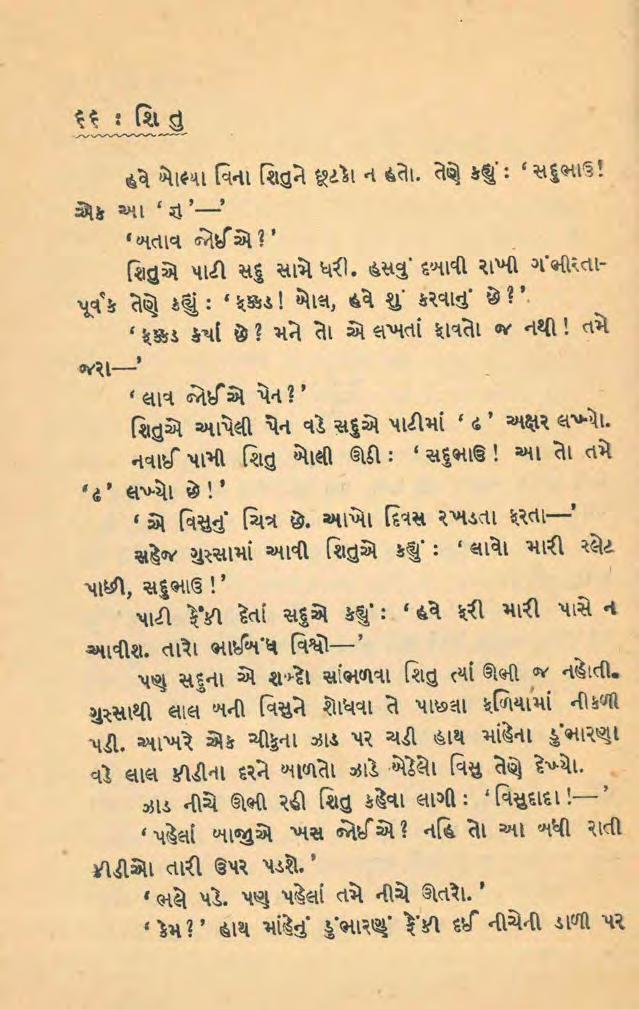 ૬૬ : શિ તુ
હવે બોલ્યા વિના શિતુને છૂટકો ન હતો. તેણે કહ્યું : ‘ સદુભાઉ!
એક આ ‘ જ્ઞ ’—’
‘બતાવ જોઈએ ?’
શિતુએ પાટી સદુ સામે ધરી. હસવું દબાવી રાખી ગંભીરતા-
પૂર્વક તેણે કહ્યું : ‘ ફક્કડ ! બોલ, હવે શું કરવાનું છે ?’
‘ ફક્કડ ક્યાં છે ? મને તો એ લખતાં ફાવતો જ નથી ! તમે
જરા—’
‘ લાવ જોઈએ પેન ?’
શિતુએ આપેલી પેન વડે સદુએ પાટીમાં ‘ ઢ ’ અક્ષર લખ્યો.
નવાઈ પામી શિતુ બોલી ઊઠી : ‘ સદુભાઉ ! આ તો તમે
‘ઢ’ લખ્યો છે !’
‘ એ વિસુનું ચિત્ર છે. આખો દિવસ રખડતા ફરતા—’
સહેજ ગુસ્સામાં આવી શિતુએ કહ્યું : ‘ લાવો મારી સ્લેટ
પાછી, સદુભાઉ !’
પાટી ફેંકી દેતાં સદુએ કહ્યું : ‘ હવે ફરી મારી પાસે ન
આવીશ. તારો ભાઈબંધ વિશ્વો—’
પણ સદુના એ શબ્દો સાંભળવા શિતુ ત્યાં ઊભી જ નહોતી.
ગુસ્સાથી લાલ બની વિસુને શોધવા તે પાછલા ફળિયામાં નીકળી
પડી. આખરે એક ચીકુના ઝાડ પર ચડી હાથ માંહેના ડુંભારણા
વડે લાલ કીડીના દરને બાળતો ઝાડે બેઠેલો વિસુ તેણે દેખ્યો.
ઝાડ નીચે ઊભી રહી શિતુ કહેવા લાગી : ‘વિસુદાદા !—’
‘પહેલાં બાજુએ ખસ જોઈએ ? નહિ તો આ બધી રાતી
કીડીઓ તારી ઉપર પડશે.’
‘ ભલે પડે. પણ પહેલાં તમે નીચે ઊતરો. ’
‘ કેમ ?’ હાથ માંહેનું ડુંભારણું ફેંકી દઈ નીચેની ડાળી પર